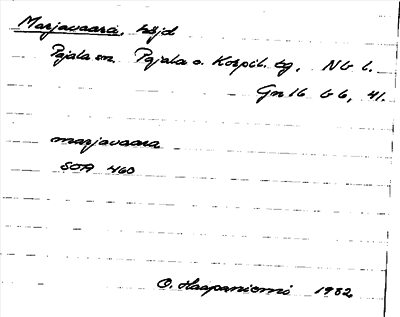 Marjavaara, höjd
Pajala sn. Pajala o. Korpil. tg. Nb l.
Gn 16 b 6, 41.
marjavaara
SOA 460
O. Haapaniemi 1932